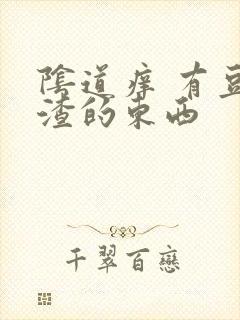 陰道痒 有豆
渣的東西
千翠百戀